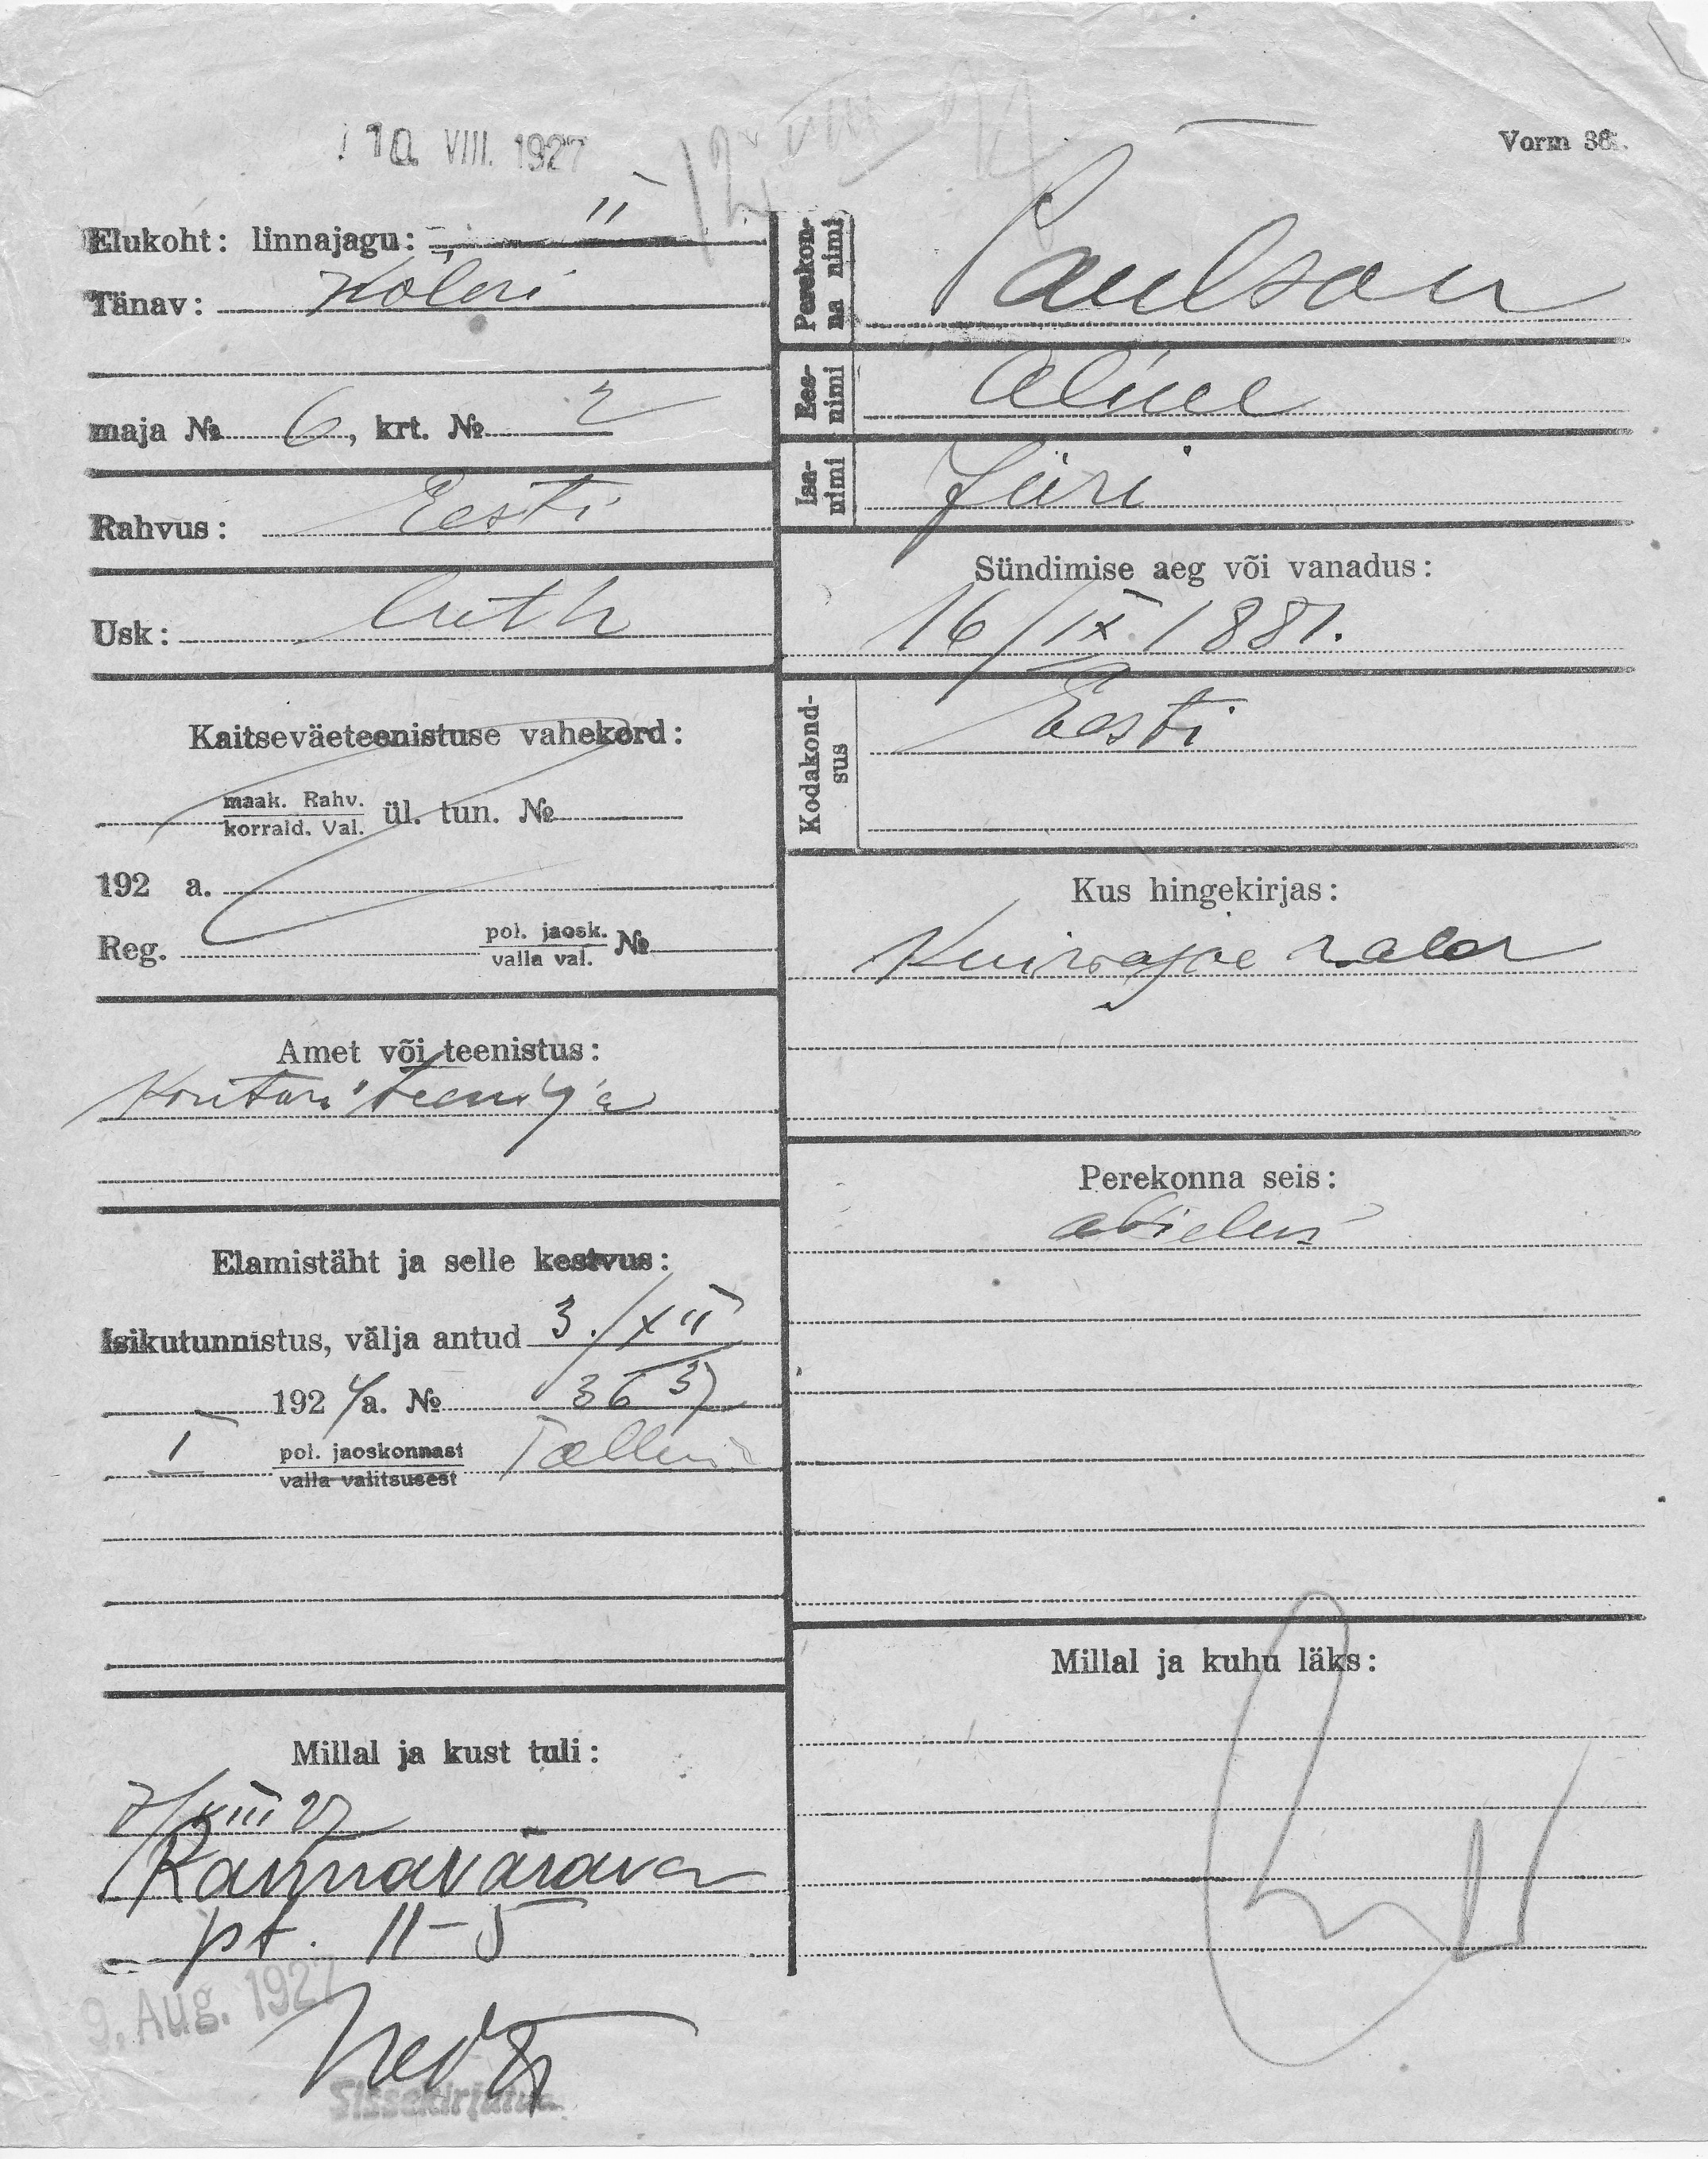 10. VIII. 1927
Vorm 36.
Elukoht: linnajagu: II
Tänav: Köleri
maja № 6, krt. № 2
Rahvus: Eesti
Usk: luth
Kaitseväeteenistuse vahekord:
maak. Rahv.
korrald. Val. ül. tun. №
192 a.
Reg. pol. jaosk.
valla val. №
Amet või teenistus:
Kontori teenija
Elamistäht ja selle kestvus:
Isikutunnistus, välja antud 3./XII
192 4 a. №
I pol. jaoskonnast Tallinn
valla valitsusest
Millal ja kust tuli:
7/VIII 27
Rannavärava
pt. 11-5
9. Aug. 1927
Sissekirjutud
Perekon-
na nimi
Paulson
Ees-
nimi
Aline
Isa-
nimi
Jüri
Sündimise aeg või vanadus:
16/IX 1881.
Kodakond-
sus
Eesti
Kus hingekirjas:
Kuiwajõe vald
Perekonna seis:
abielus
Millal ja kuhu läks: